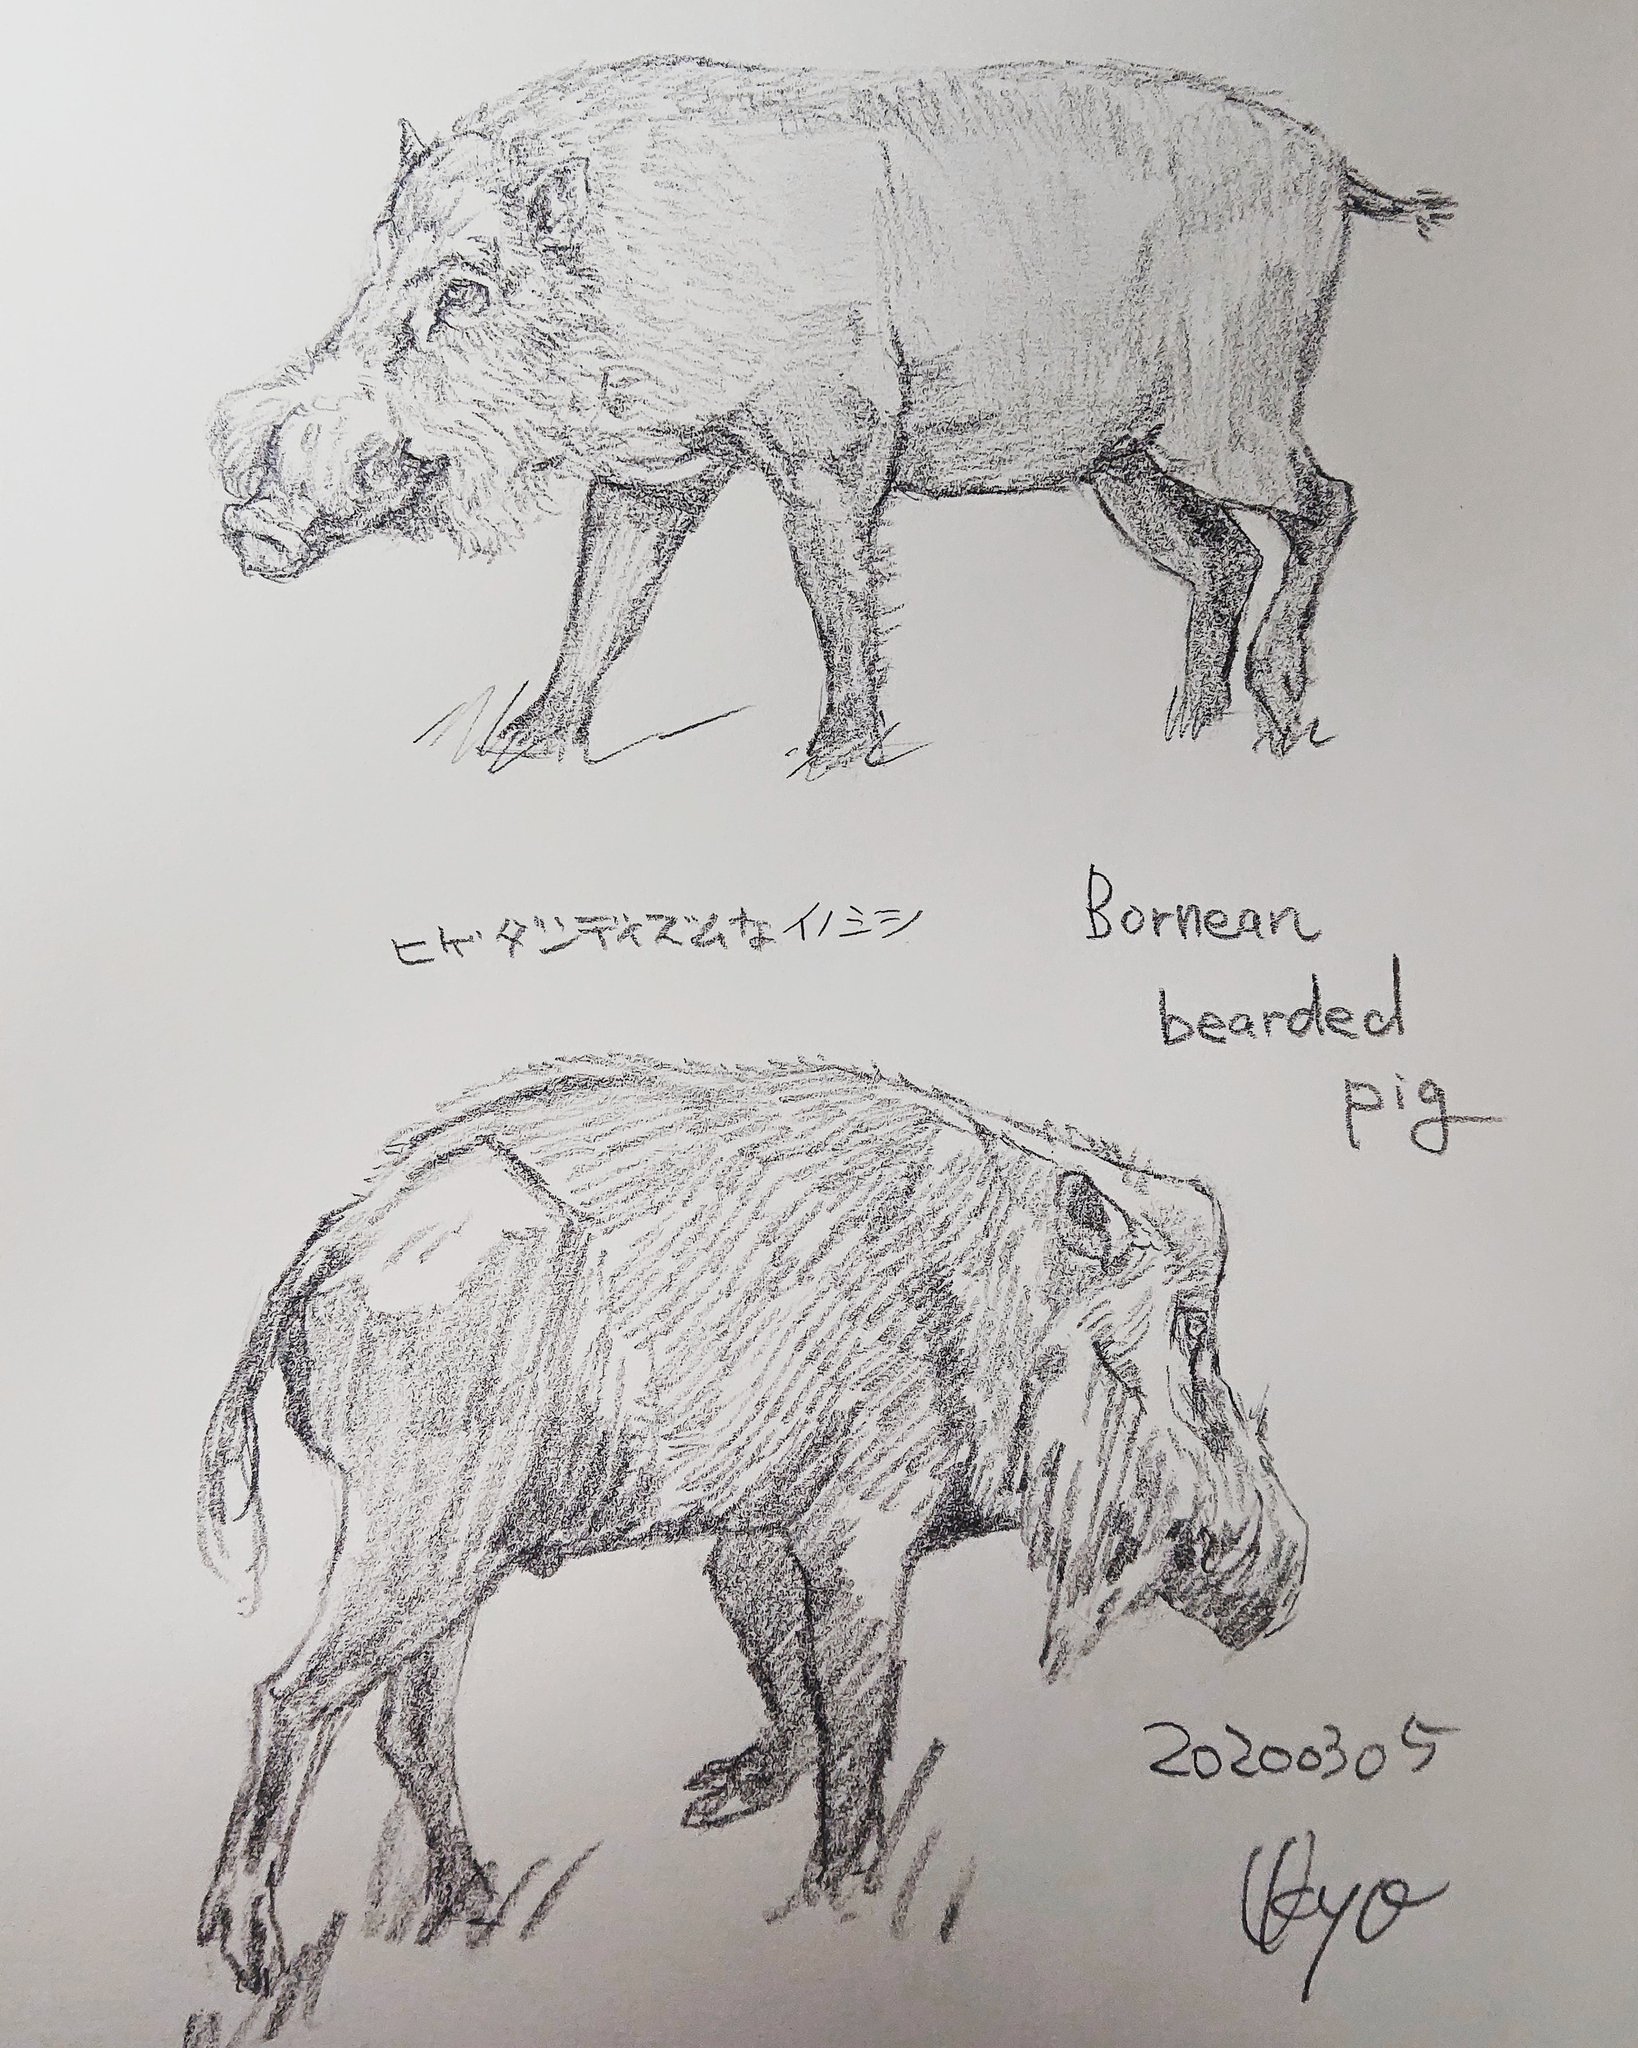 ヒゲダンディズムなイノシシ
Bornean
bearded
pig
20200305